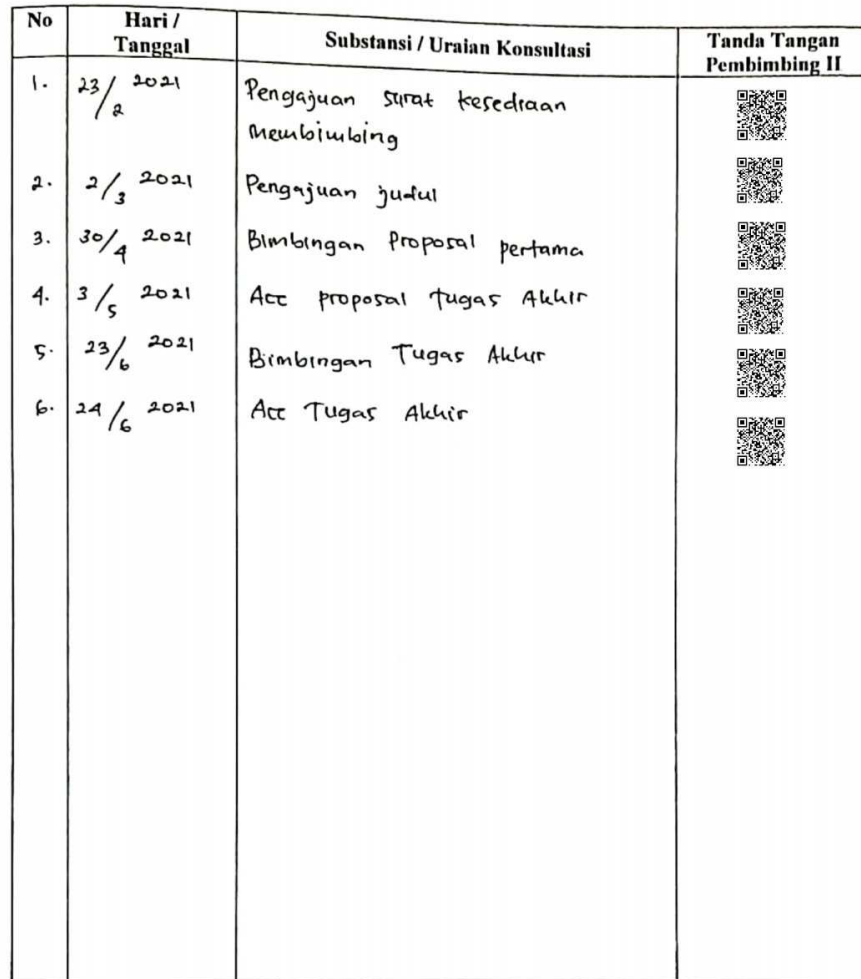 No Hari / Tanggal Substansi / Uraian Konsultasi Tanda Tangan Pembimbing II
1. 23/2 2021 Pengajuan surat kesediaan
membimbing
2. 2/3 2021 Pengajuan judul
3. 30/4 2021 Bimbingan Proposal pertama
4. 3/5 2021 Acc proposal tugas Akhir
5. 23/6 2021 Bimbingan Tugas Akhir
6. 24/6 2021 Acc Tugas Akhir